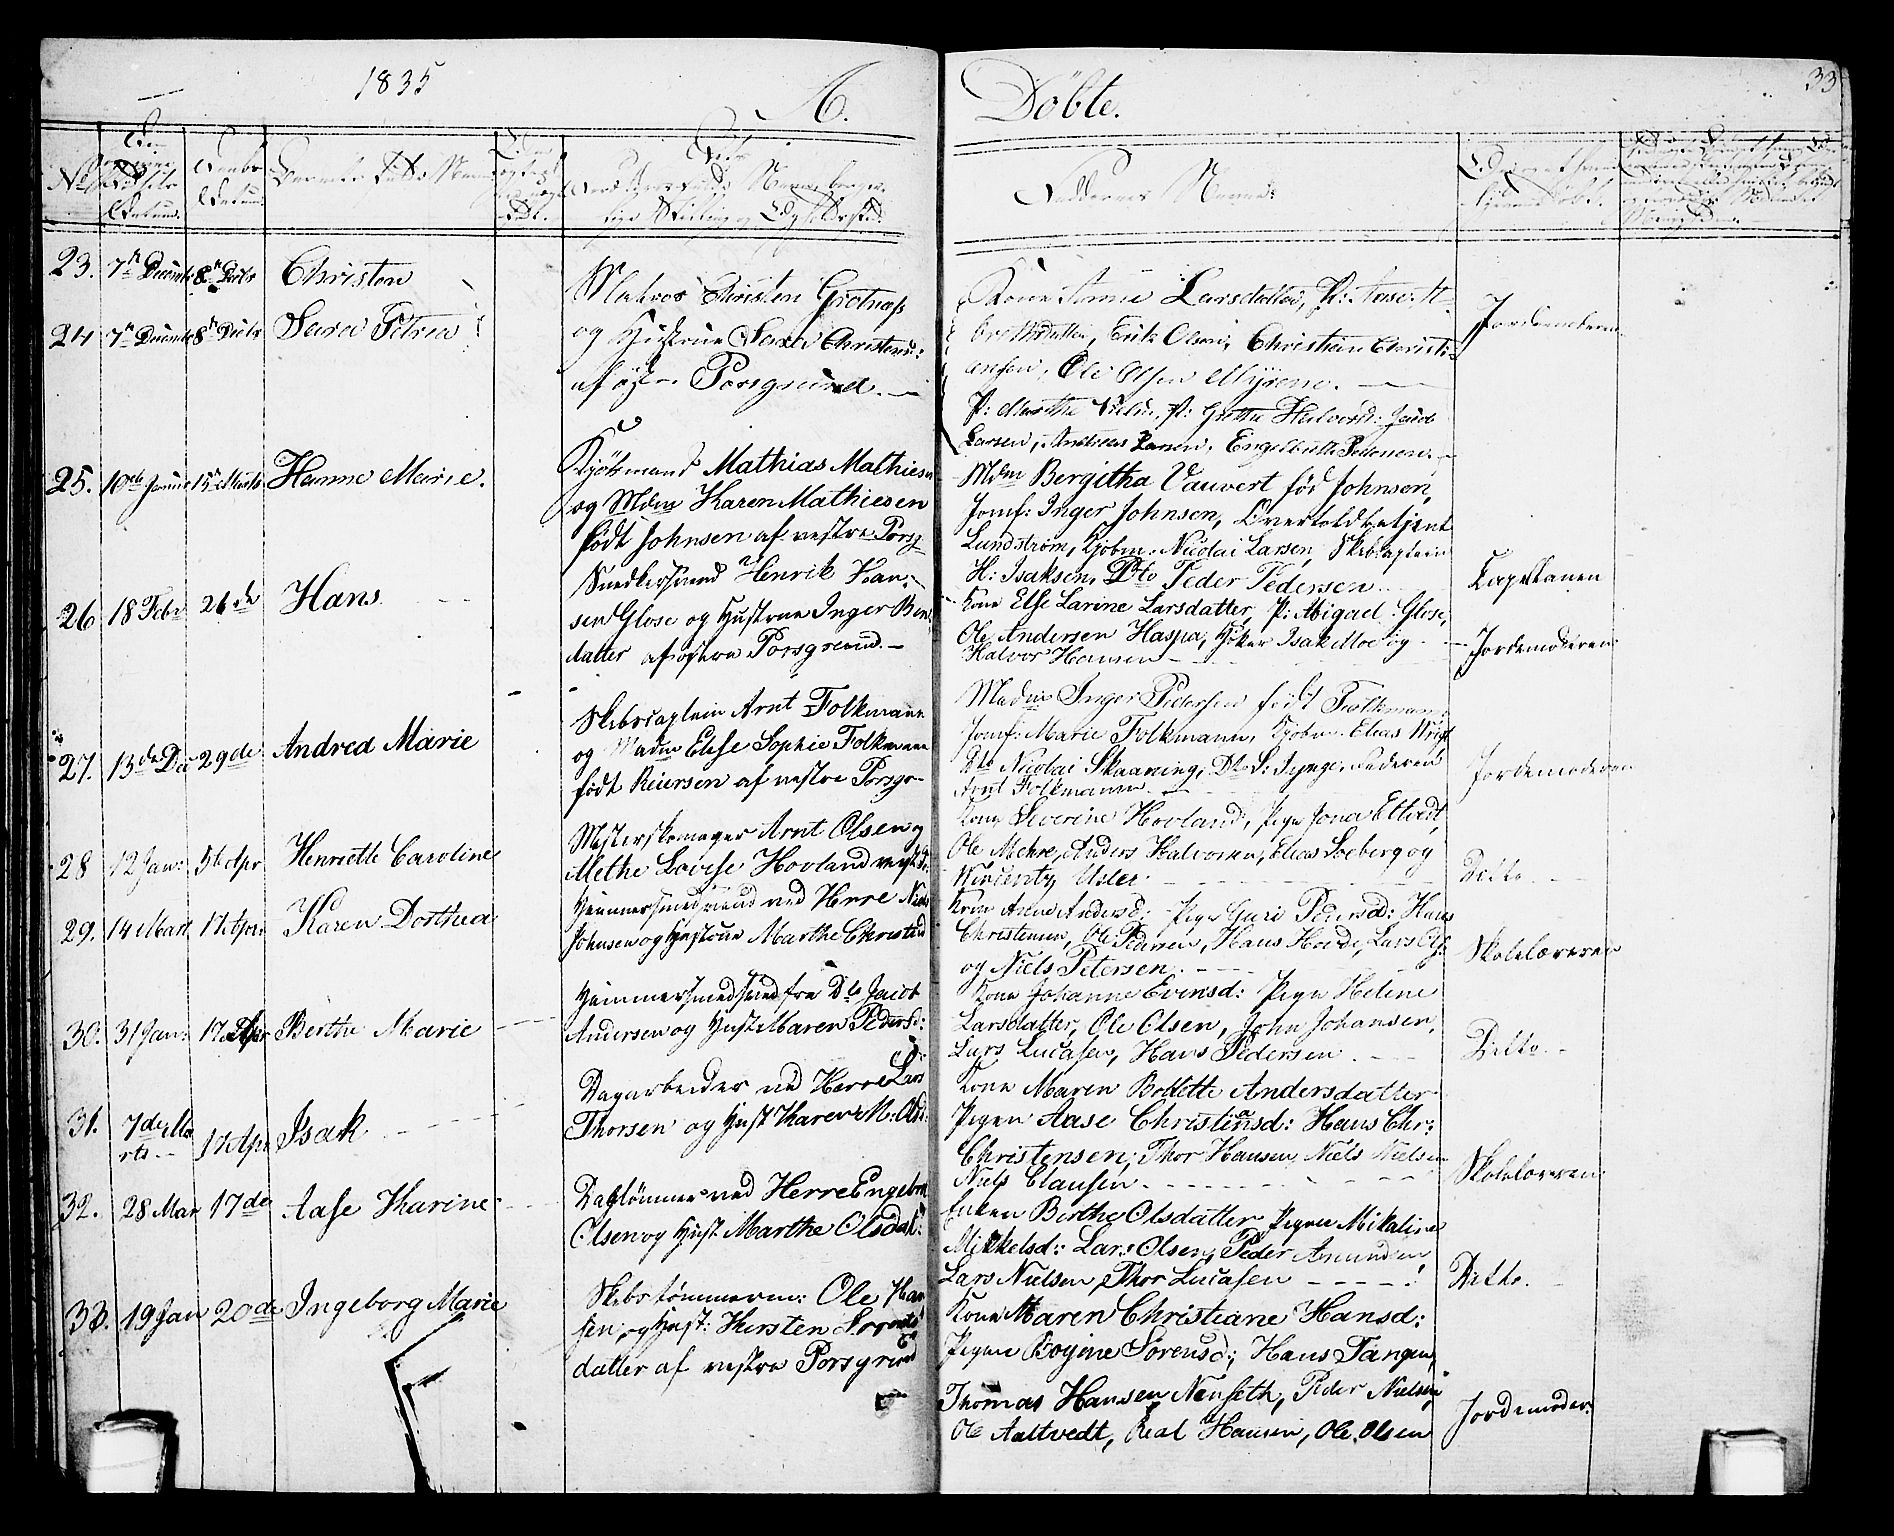 1835
A.
Döbte.
33
No
Datum.
Daabs
Datum.
Barnets fulde Navn
Faddernes Navne:
23. 7n Decimbr 8n Decbr Christen
24 7n Decimbr 8n Decbr Sara Petrea
Matros Christen Grotnæss
og Hustrue Sara Christensd:
af øst- Porsgrund.
Kone Anne Larsdatter, P: Aase A-
brahsdatter, Erik Olsen, Christian Christi-
ansen, Ole Olsen Myrene.
P: Marthe Niels, P: Grethe Halvorsd: Jacob
Larsen, Andreas Hansen, Engelbrett Pettersen.
Jordemoderen
25. 10de Januar 15n Marts Hanne Marie.
Kjöbmand Mathias Mathiesen
og Mdm Karen Mathiesen
födt Johnsen af vestre Porsg
Mdm Bergitha Vauvert föd Johnsen,
Jomf: Inger Johnsen, Overtoldbetjent
Lundström, Kjöbm. Nicolai Larsen, Skibcaptein
H: Isaksen, Dto Peder Pedersen
Capellanen
26 18 Febr 26de Hans
Snedkersvend Henrik Han-
sen Glose og Hustrue Inger Ben
datter af østre Porsgrund.
Kone Else Larine Larsdatter, P: Abigael Glose,
Ole Andersen Haspa, Höker Isak Moe og
Halvor Hansen
Jordemoderen
27. 13de De 29de Andrea Marie
Skibscaptein Arnt Folkmann
og Madm Elese Sophie Folkmann
födt Reiersen af vestre Porsgr
Madm Inger Pedersen födt Folkmann,
Jomf: Marie Folkmann, Kjöbm. Elias Wrigt
Dto Nicolai Skaaning, Dto S: Iynge, Faderen
Arnt Folkmann.
Jordemoderen
28 12 Jan: 5t Apr Henriette Caroline
Mesterskomager Arnt Olsen og
Methe Lovise Hovland vestre
Kone Severine Hovland, Pige Jona Eltvedt,
Ole Mehre, Anders Halvorsen, Elias Soeberg og
Wincenty Usler
Ditto
29. 14 Mart 17 Apr Karen Dorthea
Hammersmedsvend ved Herre Niels
Johnsen og Hustrue Marthe Christensd
Kone Anne Andersd: Pige Guri Pedersd: Hans
Christensen, Ole Pedersen, Hans Hende, Lars Ols.
og Niels Petersen.
Skolelæreren
30. 31 Jan: 17 Apr Berthe Marie
Hammersmedsved fra Dto Jacob
Andersen og Hust Maren Pedersd:
Kone Johanne Evensd: Pige Helene
Larsdatter, Ole Olsen, John Johansen,
Lars Lucasen, Hans Pedersen
Ditto
31. 7de Ma
rts 17 Apr Isak
Dagarbeider ved Herre Lars
Thorsen og Hust Karen M: Olsd:
Kone Maren Bollette Andersdatter
Pigen Aase Christiansd: Hans Chr:
Christensen, Thor Hansen, Niels Nielsen
Niels Clausen
Skolelæreren
32. 28 Mar 17de Aase Karine
Dagtömmer ved Herre Engebret
Olsen og Hust Marthe Olsdat:
Enken Birthe Olsdatter Pigen Mikaline
Mikkelsd: Lars Olsen, Peder Amundsen,
Lars Nielsen, Thor Lucasen
Ditto.
33. 19 Jan 20de Ingeborg Marie
Skibstömmerm: Ole Han
sen og Hust: Kirsten Sörens
datter af vestre Porsgrund
Kone Maren Christiane Hansd:
Pigen Bogine Sörensd:, Hans Tangen,
Thomas Hansen Nenseth, Peder Nielsen,
Ole Aaltvedt, Real Hansen, Ole Olsen
Jordemoder: